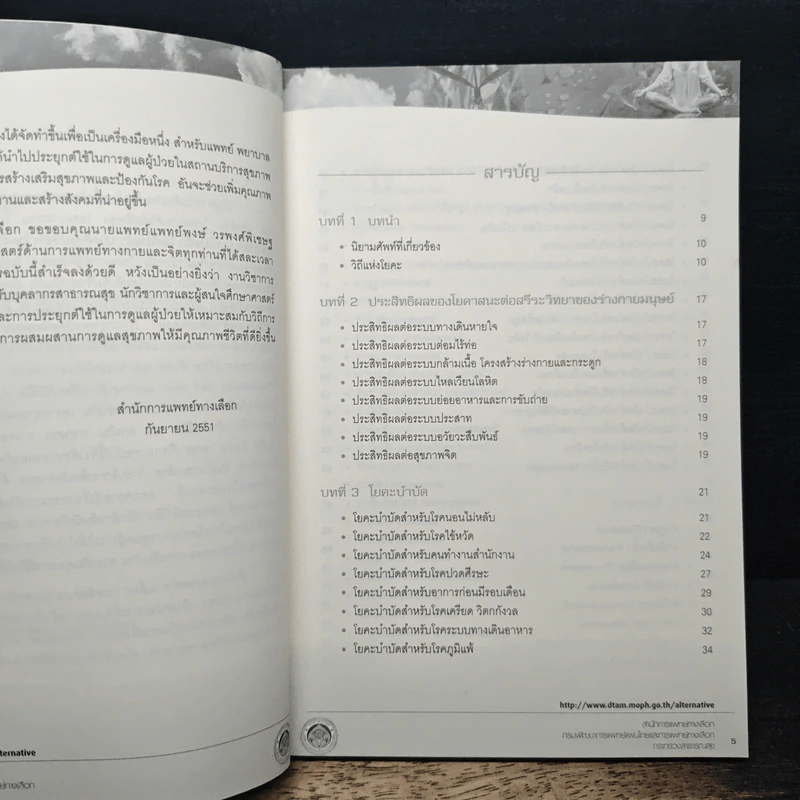 งได้จัดทำขึ้นเพื่อเป็นเครื่องมือหนึ่ง สำหรับแพทย์ พยาบาล
ได้นำไปประยุกต์ใช้ในการดูแลผู้ป่วยในสถานบริการสุขภาพ
รสร้างเสริมสุขภาพและป้องกันโรค อันจะช่วยเพิ่มคุณภาพ
านและสร้างสังคมที่น่าอยู่ขึ้น
ลือก ขอขอบคุณนายแพทย์แพทย์พงษ์ วรพงศ์พิเชษฐ
สตร์ด้านการแพทย์ทางกายและจิตทุกท่านที่ได้สละเวลา
รฉบับนี้สำเร็จลงด้วยดี หวังเป็นอย่างยิ่งว่า งานวิชาการ
รับบุคลากรสาธารณสุข นักวิชาการและผู้สนใจศึกษาศาสตร์
และการประยุกต์ใช้ในการดูแลผู้ป่วยให้เหมาะสมกับวิถีการ
การผสมผสานการดูแลสุขภาพให้มีคุณภาพชีวิตที่ดียิ่งขึ้น
สำนักการแพทย์ทางเลือก
กันยายน 2551
ternative
ย์ทางเลือก
สารบัญ
บทที่ 1 บทนำ 9
• นิยามศัพท์ที่เกี่ยวข้อง 10
• วิถีแห่งโยคะ 10
บทที่ 2 ประสิทธิผลของโยคาสนะต่อสรีระวิทยาของร่างกายมนุษย์ 17
• ประสิทธิผลต่อระบบทางเดินหายใจ 17
• ประสิทธิผลต่อระบบต่อมไร้ท่อ 17
• ประสิทธิผลต่อระบบกล้ามเนื้อ โครงสร้างร่างกายและกระดูก 18
• ประสิทธิผลต่อระบบไหลเวียนโลหิต 18
• ประสิทธิผลต่อระบบย่อยอาหารและการขับถ่าย 19
• ประสิทธิผลต่อระบบประสาท 19
• ประสิทธิผลต่อระบบอวัยวะสืบพันธ์ 19
• ประสิทธิผลต่อสุขภาพจิต 19
บทที่ 3 โยคะบำบัด 21
• โยคะบำบัดสำหรับโรคนอนไม่หลับ 21
• โยคะบำบัดสำหรับโรคไข้หวัด 22
• โยคะบำบัดสำหรับคนทำงานสำนักงาน 24
• โยคะบำบัดสำหรับโรคปวดศีรษะ 27
• โยคะบำบัดสำหรับอาการก่อนมีรอบเดือน 29
• โยคะบำบัดสำหรับโรคเครียด วิตกกังวล 30
• โยคะบำบัดสำหรับโรคระบบทางเดินอาหาร 32
• โยคะบำบัดสำหรับโรคภูมิแพ้ 34
http://www.dtam.moph.go.th/alternative
สำนักการแพทย์ทางเลือก
กรมพัฒนาการแพทย์แผนไทยและการแพทย์ทางเลือก
กระทรวงสาธารณสุข
5